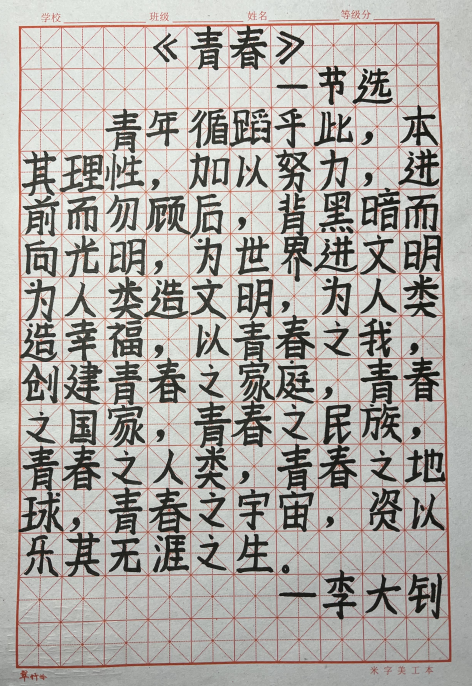 学校 班级 姓名 等级分
《青春》
—节选
青年循蹈乎此，本
其理性，加以努力，进
前而勿顾后，背黑暗而
向光明，为世界进文明
为人类造文明，为人类
造幸福，以青春之我，
创建青春之家庭，青春
之国家，青春之民族，
青春之人类，青春之地
球，青春之宇宙，资以
乐其无涯之生。
—李大钊
米字美工本